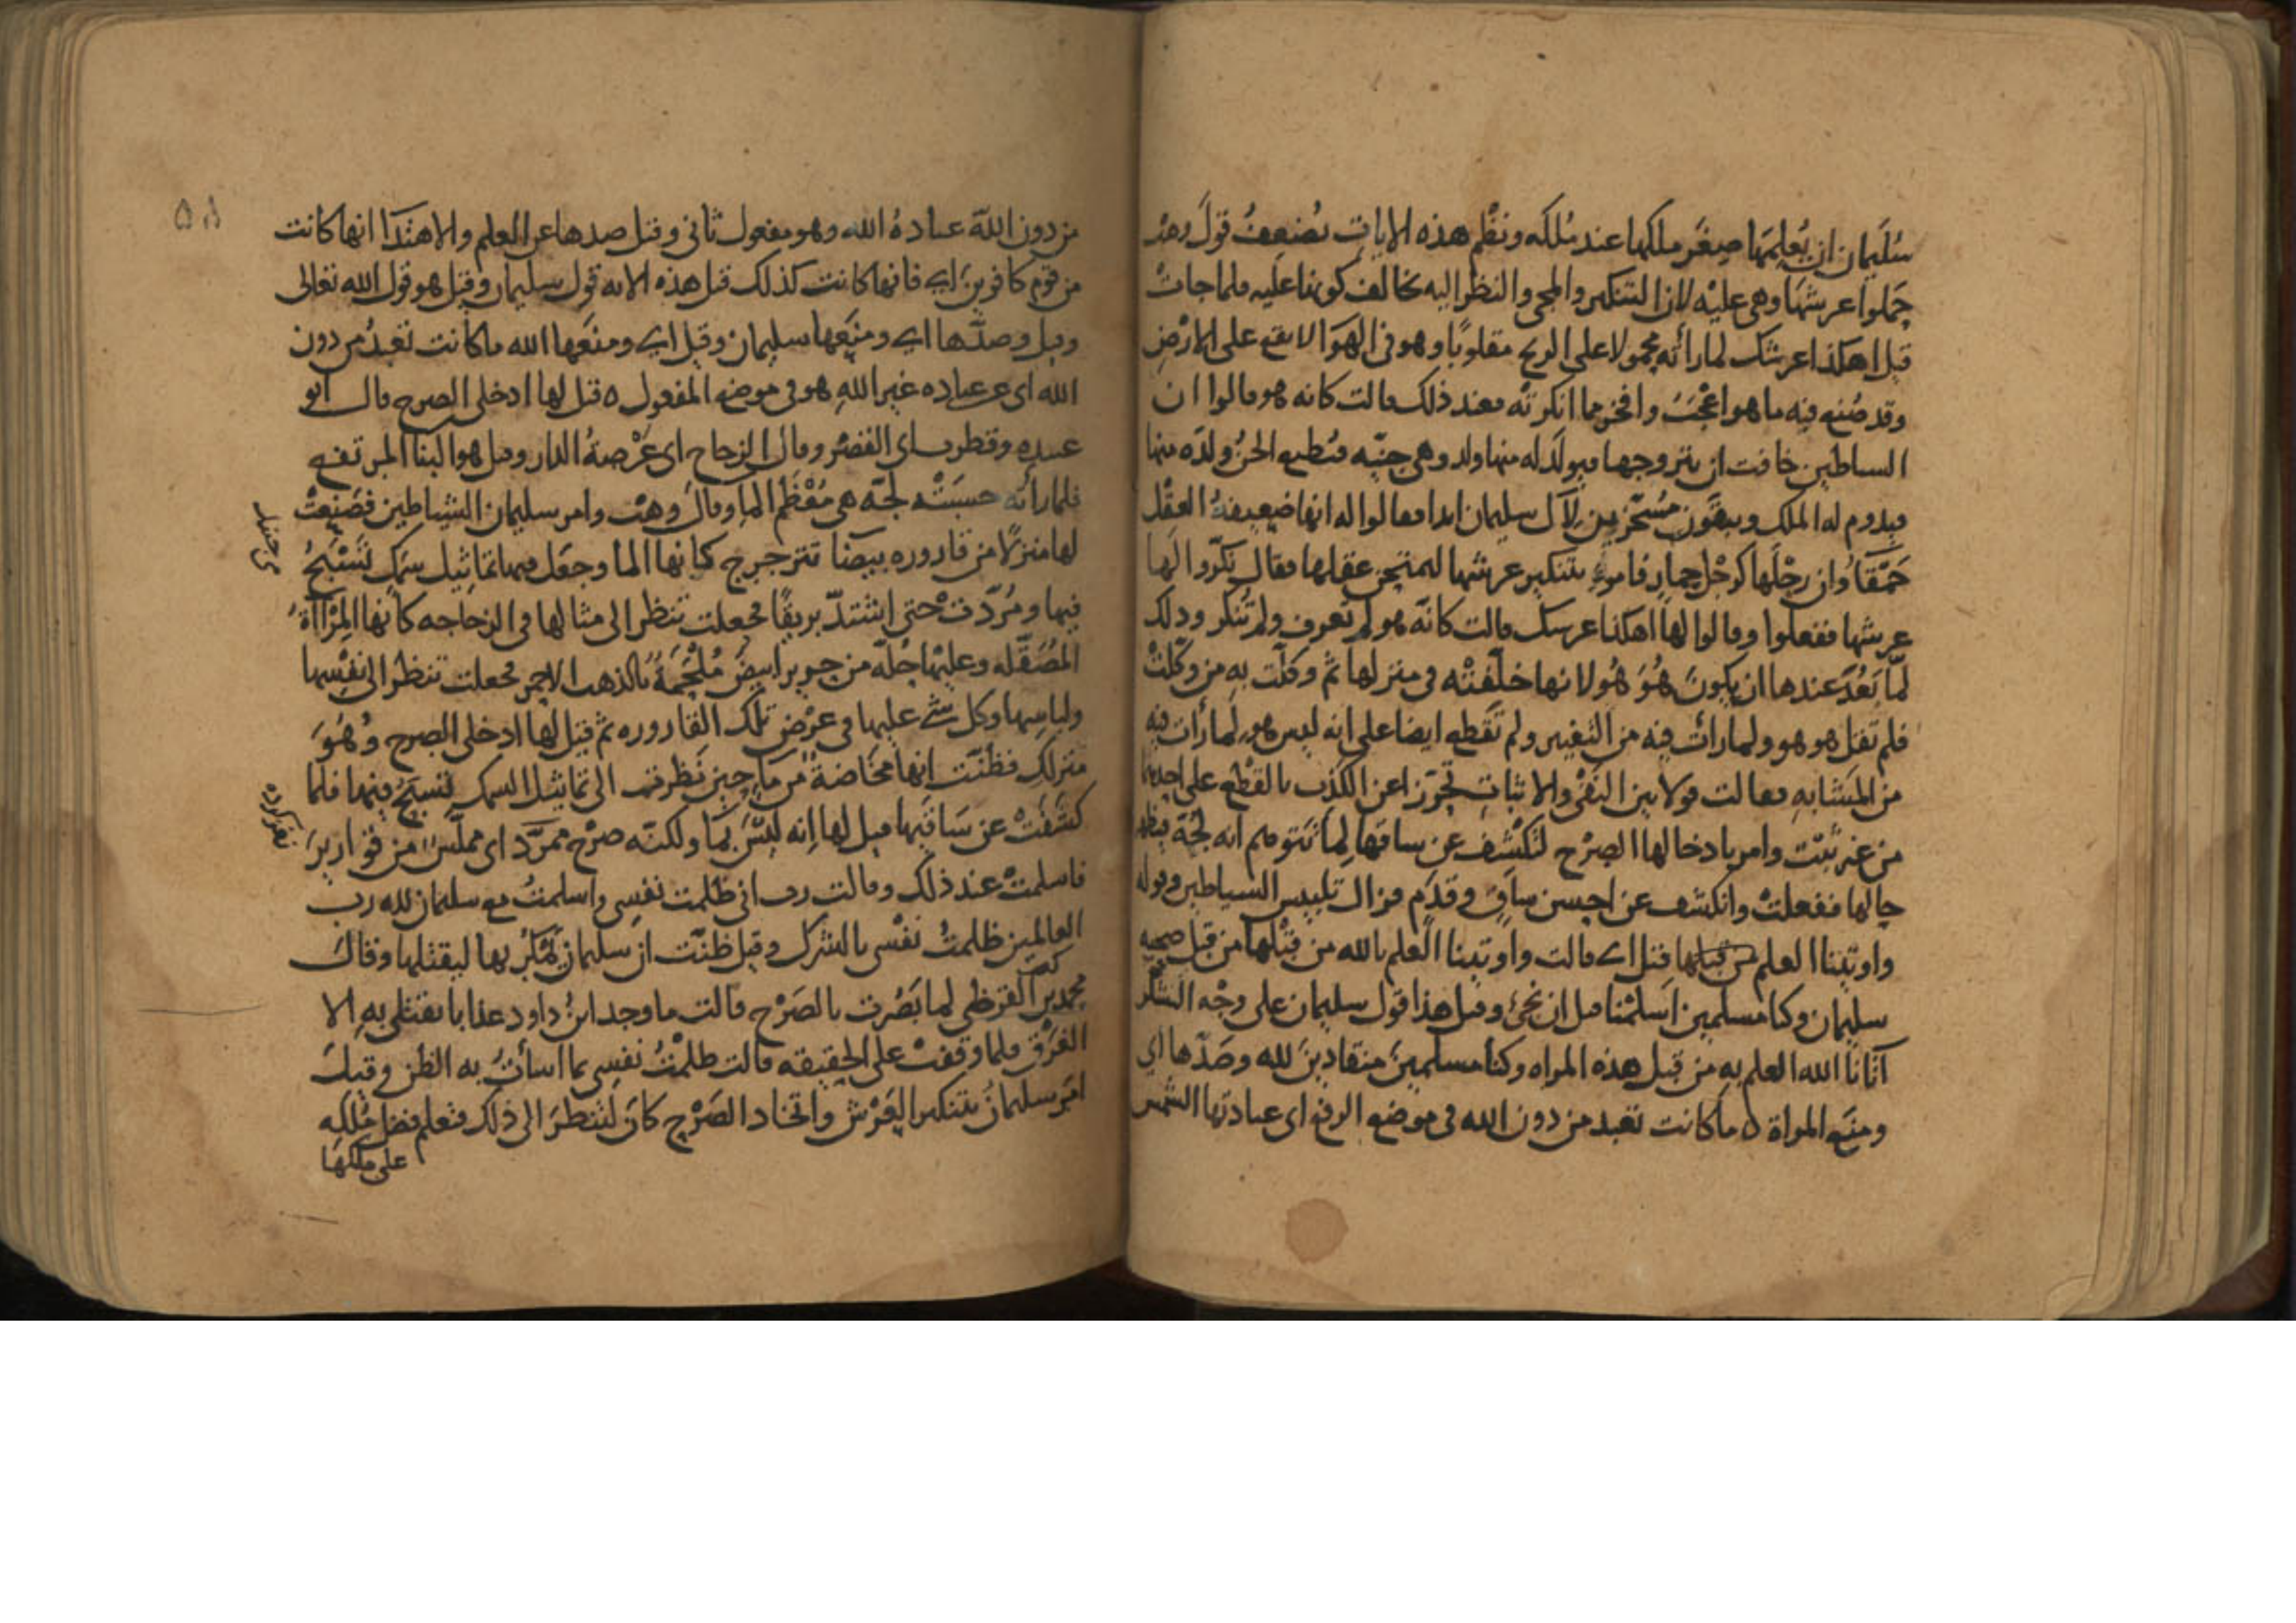 سُلَيمان ان يُعلِمَها صِغَر ملكها عند مُلكه ونظْم هذه الايات يُضعِفُ قولَ وهب
حَملوا عرشها وهي عليْه لان التنكير والمجي والنظر اليه يخالف كونها عليه فلما جات
قيل اهكذا عرشك لما رأته محمولا على الريح مقلوبًا وهو في الهوا لا يقع على الارْض
وقد صُنِع فيه ما هو اعْجَبُ وافخر مما انكرتْه فعند ذلك قالت كانه هو قالوا ان
الشياطين خافت ان يتزوجها فيولد له منها ولد وهي جنيّه فتُطيع الجنُّ ولدَه منها
فيدوم له الملك ويبقَون مُسَخَّرين لآل سليمان ابدا فقالوا له انها ضعيفةُ العقل
حَمْقَآءُ وان رجْلَها كرجْل حِمار فامر بتنكير عرشها ليمتحن عقلها فقال نكّروا لَها
عرشها ففعلوا وقالوا لها اهكذا عرشك قالت كانّه هو لم تعرف ولم تُنكر وذلك
لمّا بَعُدَ عندها ان يكونَ هُوَ هُو لانها خلّفتْه في منزلها ثم وكلّت بهِ من وكّلتْ
فلم تقل هو هو ولما رأت فيه من التغيير ولم تقطع ايضا على انه ليس هو لما رأت فيه
من المتشابهِ فقالت قولا بين النفْي والاثباتِ تحرّزا عن الكذب بالقطْع على احدهما
من غير تثبّت وامر بادخالها الصرْح لتكْشف عن ساقها لِما تتوهم انه لجّة فينظر
حالها ففعلتْ وانكشف عن احسن ساقٍ وقدمٍ فزال تلبيس الشياطين وقوله
واوتينا العلم من قبلها قيل اي قالت واوتينا العلم بالله من قبْلها من قبل صحه
سليمان وكنا مسلمين اسلمْنا قبل ان نجئ وقيل هذا قول سليمان على وجْه الشكر
آتانا الله العلم بهِ من قبل هذه المراه وكنّا مسلمينَ منقادينَ لله وصَدّها اي
ومنَع المراة ٥ ما كانت تعبد من دون الله في موضع الرفع اي عبادتها الشمس
من دون اللهِ عبادةُ الله وهو مفعول ثاني وقيل صدها عن العلم والاهتدا انها كانت
من قوم كافرين اي فانها كانت كذلك قبل هذه الايه قول سليمان وقيل هو قول الله تعالى
وقيل وصدّها اي ومنَعها سليمان وقيل اي ومنعَها الله ما كانت تعبدُ من دون
الله اي عن عباده غير اللهِ هو في موضع المفعول ٥ قيل لها ادخلي الصرح قال ابو
عبيده وقطرب اي القصْر وقال الزجاج اي عَرْصةُ الدار وقيل هو البنا المرتفع
فلما رأته حسبَتْه لجّة هي مُعْظَم الما وقال وهب وامر سليمان الشياطين فصَنِعتْ
لها منزلًا من قاروره بيضا تترجرج كانها الما وجعَل فيها تماثيل سَمَكٍ تَسْبَحُ
فيها ومُرّدت حتى اشتدّ بريقًا فجعلت تنظر الى مثالها في الزجاجه كانها المِرْاآةُ
المُصَقّله وعليها حُلّه من حرير ابيضَ مُلْحَمَةً بالذهب الاحمر فجعلت تنظر الى نفْسها
ولباسِها وكل شئ عليها في عرْض تلك القاروره ثم قيل لها ادخلي الصرح وهُوَ
منزلكِ فظنّت انها مخَاضةٌ من مآءٍ حين نَظرت الى تماثيل السمك تَسبَحُ فيها فلما
كشَفتْ عن سَاقَيها قيل لها اِنه ليْسَ بمآ ولكنّه صرْح ممرَّد اي مملّس من قواريرَ
فاسلمتْ عند ذلك وقالت رب اني ظلمت نفسِي واسلمتُ مع سليمان لله رب
العالمين ظلمتُ نفْسي بالشرك وقيل ظنّت ان سليمان يَمْكُرُ بها ليقتلها وقال
محمد بن كعب القرظي لما بَصُرت بالصَرْح قالت ما وجد ابنُ داود عذابا يقتلني بهِ الا
الغرق فلما وقفتْ على الحقيقه قالت ظلمْتُ نفسِي بما اسأتُ به الظن وقيل
امر سليمانُ بتنكير العَرْش واتخاذ الصَرْح كان لتنظرَ الى ذلك فتعلم فضل مُلكِه
على ملكها